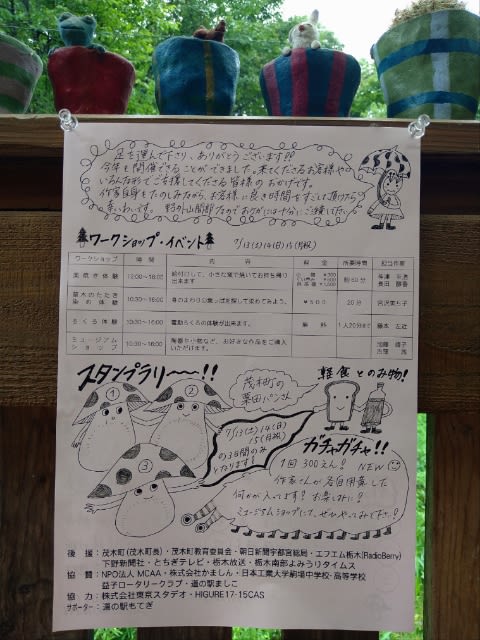 足を運んで下さり、ありがとうございます!!
今年も開催できることができました。来てくださるお客様や
いろんな形でご支援してくださる皆様のおかげです。
作家自身もたのしみながら、お客様に良き時間をすごして頂けたら
幸いです。
ワークショップ・イベント
7/13(土)14(日)15(月祝)
ワークショップ 時間 内容 料金 所要時間 担当作家
楽焼き体験 12:00~16:00 絵付けして、小さな窯で焼いてお持ち帰り出来ます。 約60分
草木のたたき染め体験 10:30~16:00 身のまわりの葉っぱを採して染めてみよう。 ¥500 20分 宮沢美ち子
ろくろ体験 10:30~16:00 電動ろくろの体験が出来ます。 無料 1人20分まで 藤本 左近
ミュージアムショップ 10:30~16:00 陶器や小物など、お好きな作品をご購入いただけます。
スタンプラリー〜!!
茂木町の
栗田パンさん
軽食とのみ物!
1
2
3
7/13(土)14(日)
15(月祝)
の3日間のみ
となります!
ガチャガチャ!!
1回300えん! NEW
作家さんが各自用意した
何かが入ってます? お楽しみに!
ミュージアムショップにて、ぜひやってみて下さい!
後 援:茂木町(茂木町長)・茂木町教育委員会・朝日新聞宇都宮総局・エフエム栃木(RadioBerry)
下野新聞社・とちぎテレビ・栃木放送・栃木南部よみうりタイムス
協 賛:NPO法人 MCAA・株式会社かましん・日本工業大学駒場中学校・高等学校
益子ロータリークラブ・道の駅ましこ
協 力:株式会社東京スタデオ・HIGURE17-15CAS
サポーター:道の駅もてぎ